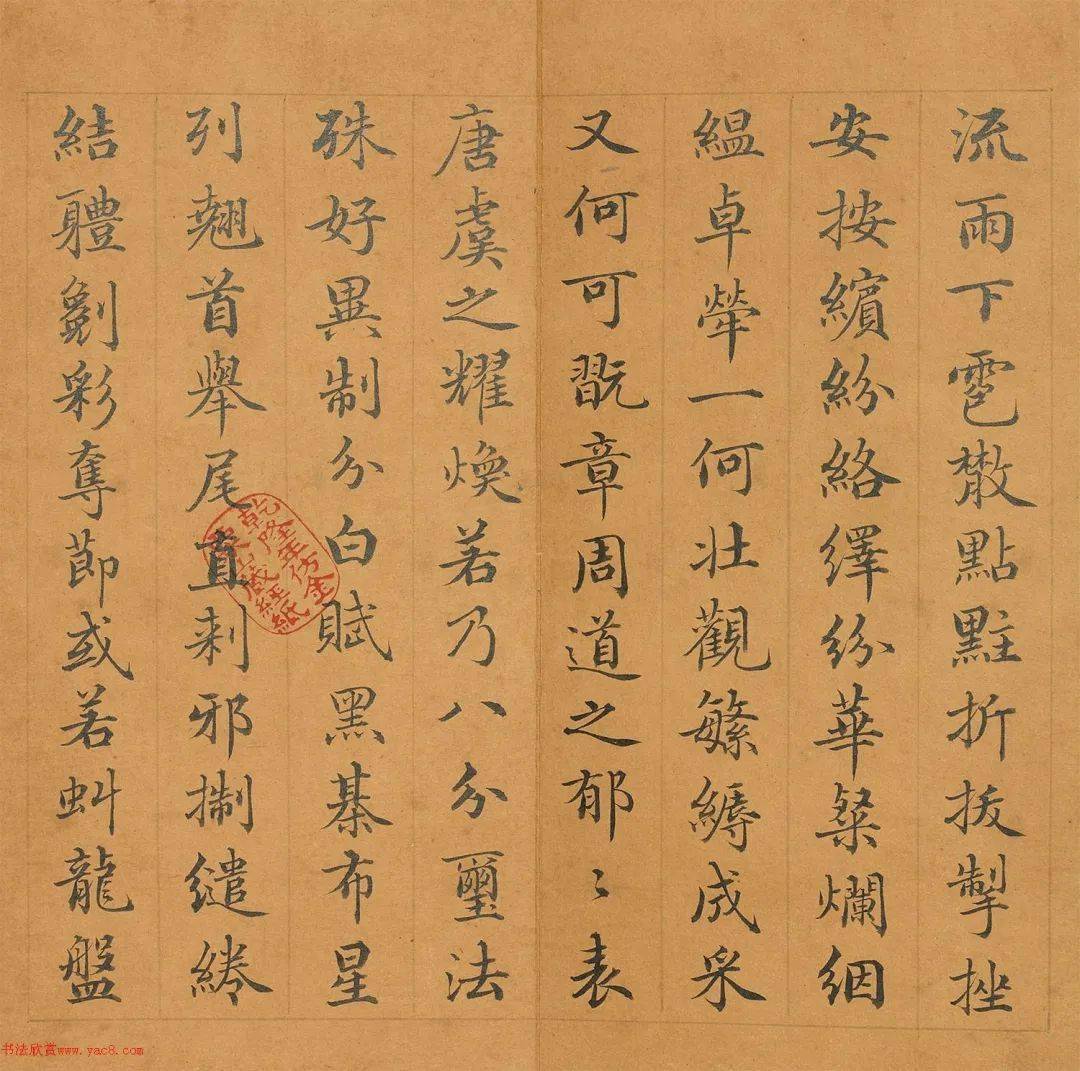 流雨下雹散點點黈折拔掣挫
安按繽紛絡繹紛華粲爛絪
縕卓犖一何壯觀繁縟成文
又何可翫章周道之郁〻表
唐虞之耀煥若乃八分璽法
殊好異制分白賦黑棊布星
列翹首舉尾直刺邪掣繾綣
結體劖彩奪節或若虯龍盤
乾隆年仿金粟山藏經紙
书法欣赏www.yac8.com